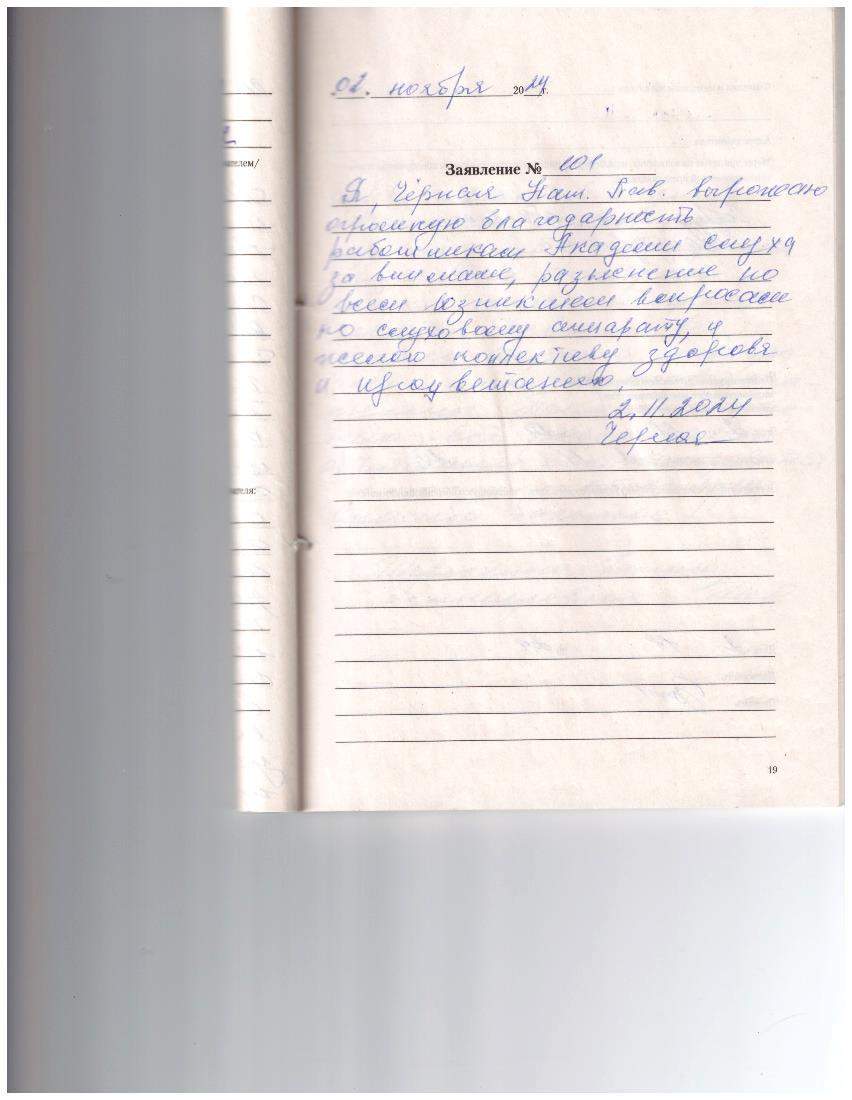 02. ноября 2024 г.
Заявление № 101
Я, Чёрная Нат. Пав. выражаю
огромную благодарность
работникам Академии слуха
за внимание, разъяснение по
всем возникшем вопросам
по слуховому аппарату, и
желаю коллективу здоровья
и процветанию.
2.11.2024
Черная
19
ателем/
ателя: